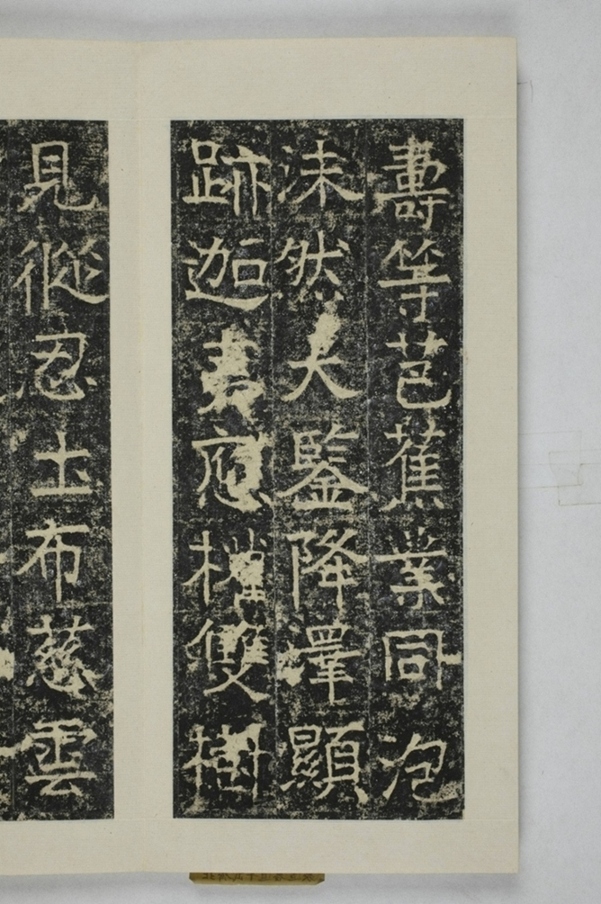 壽等芭蕉業同泡
沫然大鑒降澤顯
跡迦夷應機雙樹
見從忍土布慈雲